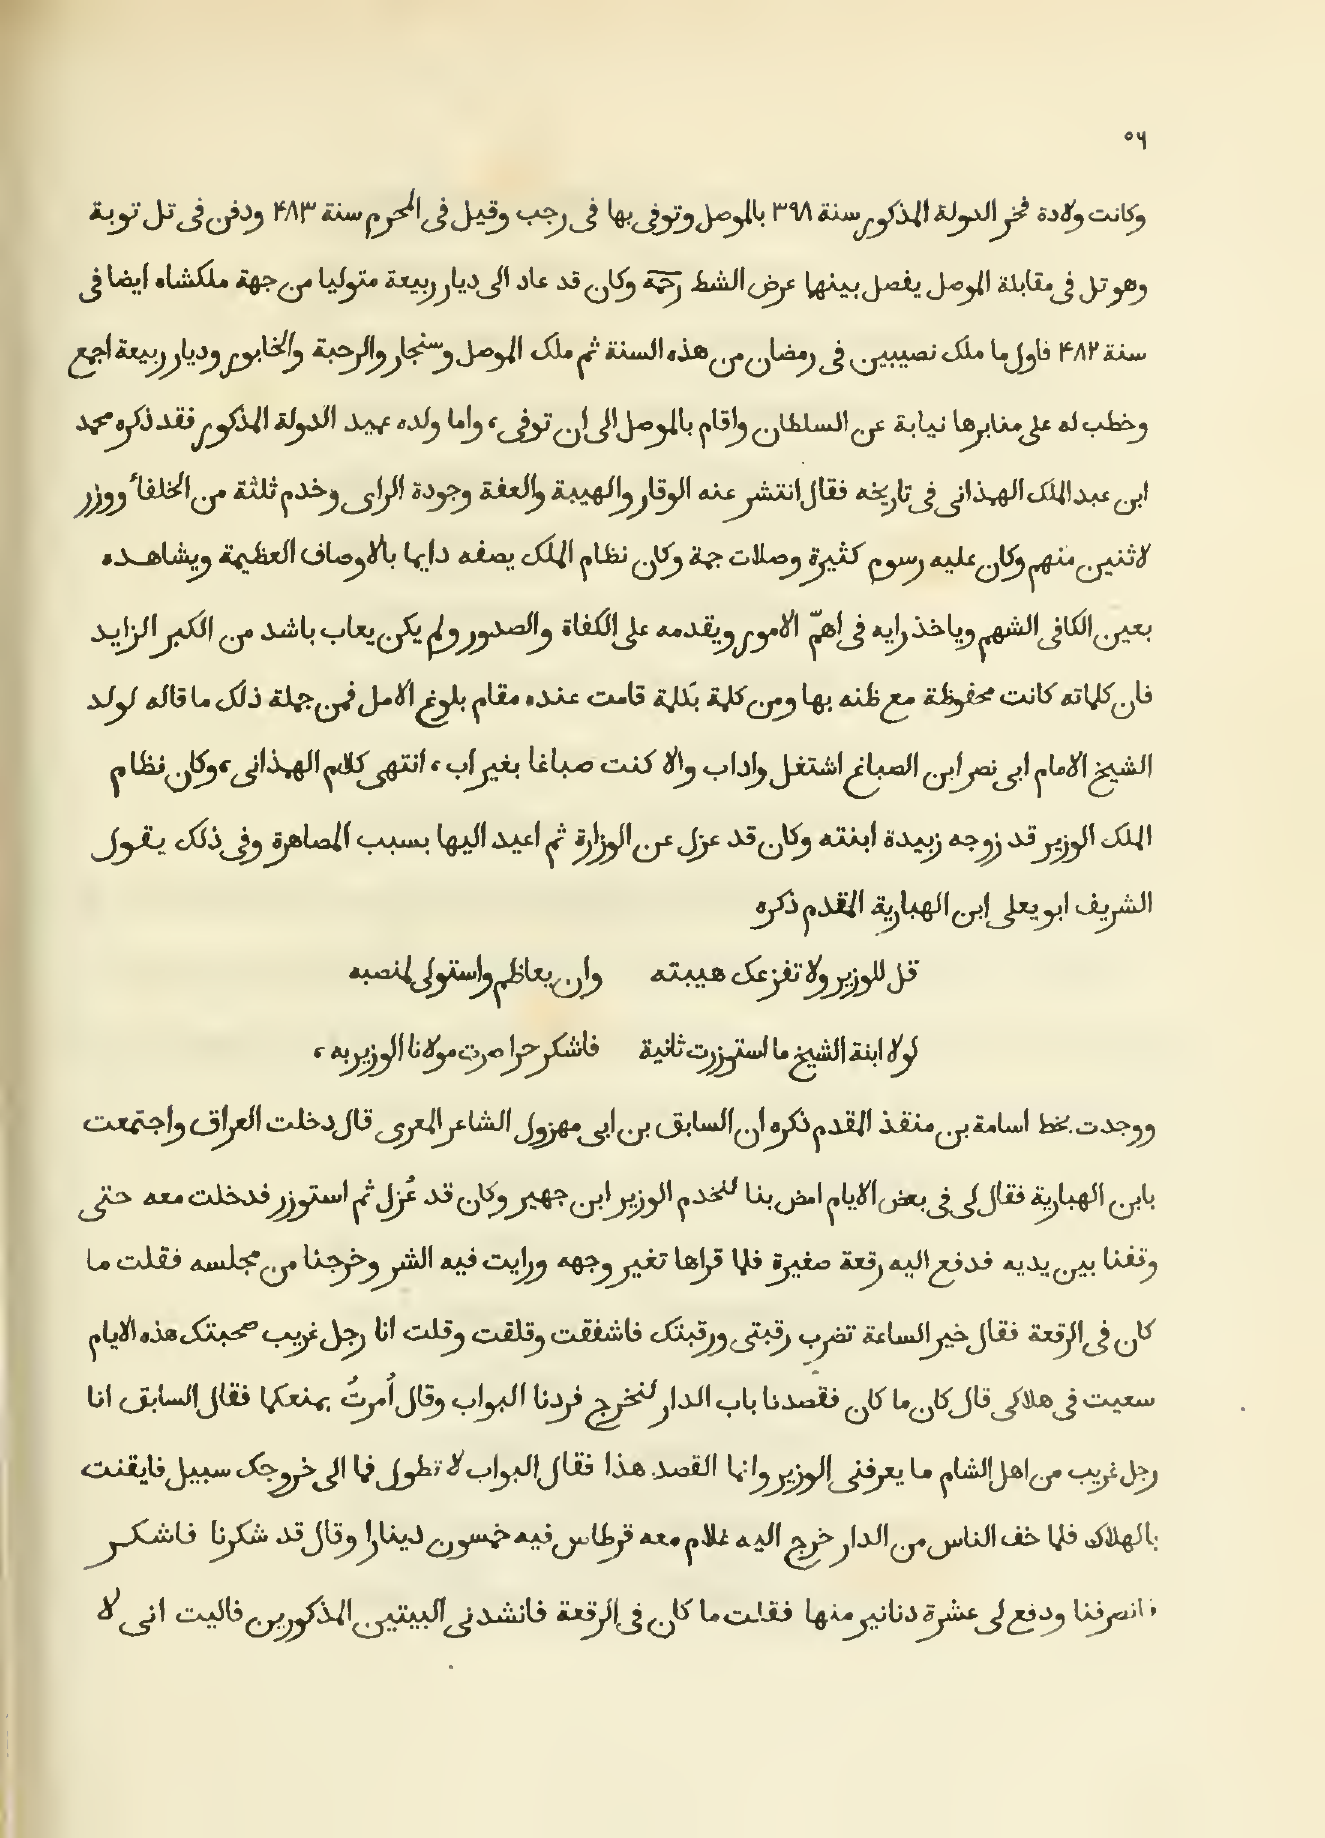 ٥٦
وكانت ولادة فخر الدولة المذكور سنة ٣٩٨ بالموصل وتوفى بها فى رجب وقيل فى المحرم سنة ۴٨٣ ودفن فى تل توبة
وهو تل فى مقابلة الموصل يفصل بينها عرض الشط رحمه وكان قد عاد الى ديار ربيعة متوليا من جهة ملكشاه ايضا فى
سنة ۴٨٢ فاول ما ملك نصيبين فى رمضان من هذه السنة ثم ملك الموصل وسنجار والرحبة والخابور وديار ربيعة اجمع
وخطب له على منابرها نيابة عن السلطان واقام بالموصل الى ان توفى، واما ولده عميد الدولة المذكور فقد ذكره محمد
ابن عبد الملك الهمذانى فى تاريخه فقال انتشر عنه الوقار والهيبة والعفة وجودة الراى وخدم ثلثة من الخلفاء ووزر
لاثنين منهم وكان عليه رسوم كثيرة وصلات جمة وكان نظام الملك يصفه دايما بالاوصاف العظيمة ويشاهده
بعين الكافى الشهم وياخذ رايه فى اهمّ الامور ويقدمه على الكفاة والصدور ولم يكن يعاب باشد من الكبر الزايد
فان كلماته كانت محفوظة مع ظنه بها ومن كلمة بَكلمة قامت عنده مقام بلوغ الامل فمن جملة ذلك ما قاله لولد
الشيخ الامام ابى نصر ابن الصباغ اشتغل واداب والا كنت صباغا بغير اب، انتهى كلام الهمذانى، وكان نظام
الملك الوزير قد زوجه زبيدة ابنته وكان قد عزل عن الوزارة ثم اعيد اليها بسبب المصاهرة وفى ذلك يقول
الشريف ابو يعلى ابن الهبارية المقدم ذكره
قل للوزير ولا تفزعك هيبته وان يعاظم واستولى لمنصبه
لولا ابنة الشيخ ما استوزرت ثانية فاشكر حرا صرت مولانا الوزير به،
ووجدت بخط اسامة بن منقذ المقدم ذكره ان السابق بن ابى مهزول الشاعر المعرى قال دخلت العراق واجتمعت
بابن الهبارية فقال لى فى بعض الايام امض بنا لنخدم الوزير ابن جهير وكان قد عُزل ثم استوزر فدخلت معه حتى
وقفنا بين يديه فدفع اليه رقعة صغيرة فلما قراها تغير وجهه ورايت فيه الشر وخرجنا من مجلسه فقلت ما
كان فى الرقعة فقال خير الساعة تضرب رقبتى ورقبتك فاشفقت وقلقت وقلت انا رجل غريب صحبتك هذه الايام
سعيت فى هلاكى قال كان ما كان فقصدنا باب الدار لنخرج فردنا البواب وقال اُمرتُ بمنعكما فقال السابق انا
رجل غريب من اهل الشام ما يعرفنى الوزير وانما القصد هذا فقال البواب لا تطول فما الى خروجك سبيل فايقنت
بالهلاك فلما خف الناس من الدار خرج اليه غلام معه قرطاس فيه خمسون دينارا وقال قد شكرنا فاشكر
فانصرفنا ودفع لى عشرة دنانير منها فقلت ما كان فى الرقعة فانشدنى البيتين المذكورين فاليت انى لا